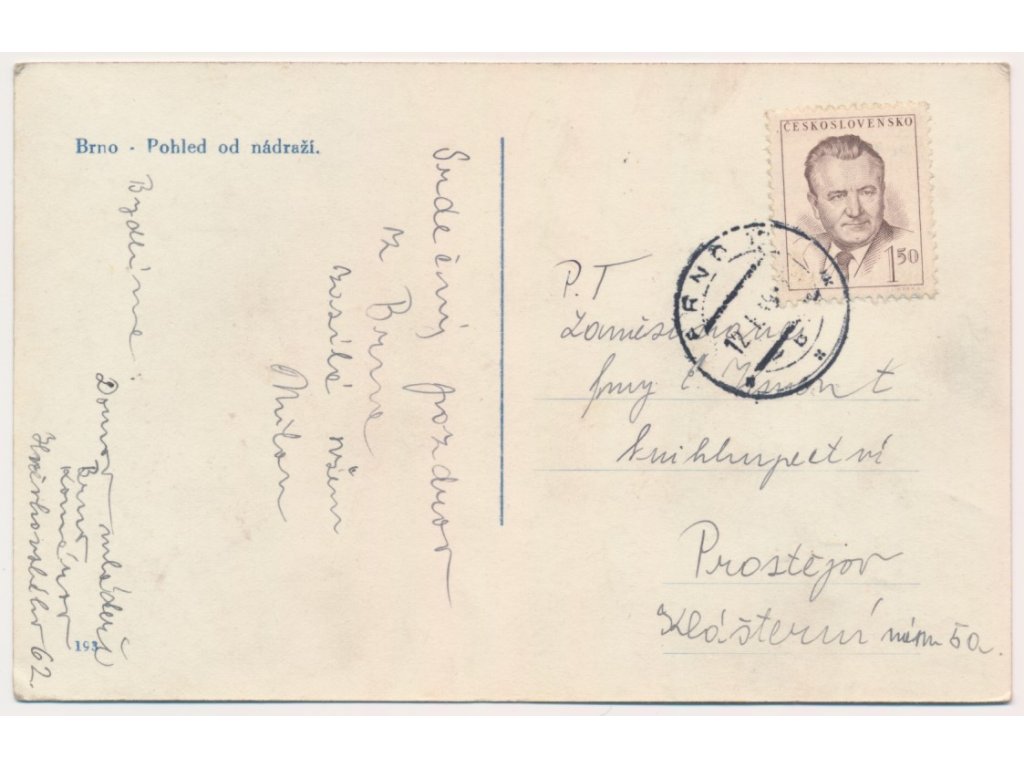 Brno - Pohled od nádraží.
Srdečný pozdrav
z Brna
zasílá všem
Milan
Bydlíme:
Domov mládeže
Brno
Hvězdova
62.
193
ČESKOSLOVENSKO
1 50
BRNO
12. I.
P. T
Zaměstnanci
fmy
knihkupectví
Prostějov
Klášterní nám 5a.